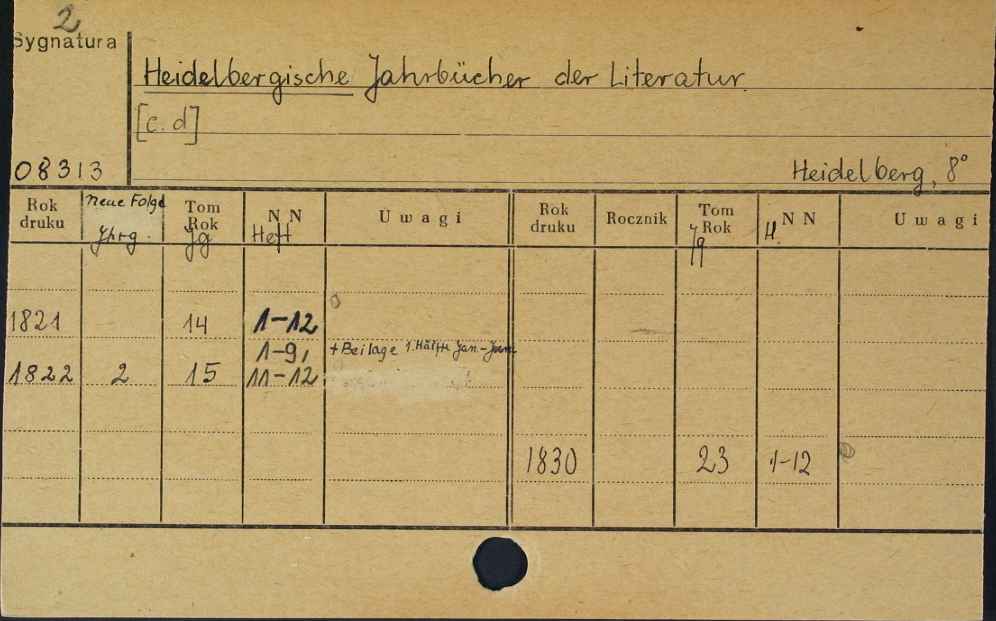 2
Sygnatura
Heidelbergische Jahrbücher der Literatur
[c. d]
08313
Heidelberg, 8°
Rok druku | Neue Folge Jhrg. | Tom Rok Jg | N N Heft | Uwagi | Rok druku | Rocznik | Tom Rok Jg | N N H. | Uwagi
1821 14 1-12
1-9, + Beilage 1. Hälfte Jan-Juni
1822 2 15 11-12
1830 23 1-12